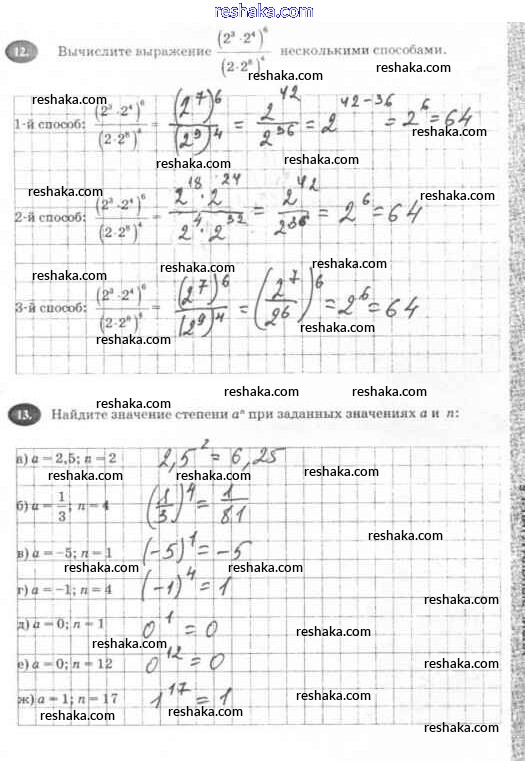 reshaka.com
reshaka.com
12. Вычислите выражение (2³·2⁴)⁶/(2·2⁸)⁴ несколькими способами.
reshaka.com reshaka.com
reshaka.com reshaka.com
1-й способ: (2³·2⁴)⁶/(2·2⁸)⁴ = (2⁷)⁶/(2⁹)⁴ = 2⁴²/2³⁶ = 2⁴²⁻³⁶ = 2⁶ = 64
reshaka.com
reshaka.com reshaka.com
2-й способ: (2³·2⁴)⁶/(2·2⁸)⁴ = 2¹⁸·2²⁴/2⁴·2³² = 2⁴²/2³⁶ = 2⁶ = 64
reshaka.com
reshaka.com reshaka.com
3-й способ: (2³·2⁴)⁶/(2·2⁸)⁴ = (2⁷)⁶/(2⁹)⁴ = (2⁷/2⁶)⁶ = 2⁶ = 64
reshaka.com
reshaka.com
reshaka.com reshaka.com reshaka.com
13. Найдите значение степени aⁿ при заданных значениях a и n:
reshaka.com
а) a = 2,5; n = 2 2,5² = 6,25
reshaka.com reshaka.com
б) a = 1/3; n = 4 (1/3)⁴ = 1/81
reshaka.com
в) a = −5; n = 1 (−5)¹ = −5
reshaka.com
г) a = −1; n = 4 (−1)⁴ = 1
reshaka.com
д) a = 0; n = 1 0¹ = 0
reshaka.com
reshaka.com
е) a = 0; n = 12 0¹² = 0
reshaka.com
ж) a = 1; n = 17 1¹⁷ = 1
reshaka.com reshaka.com
reshaka.com